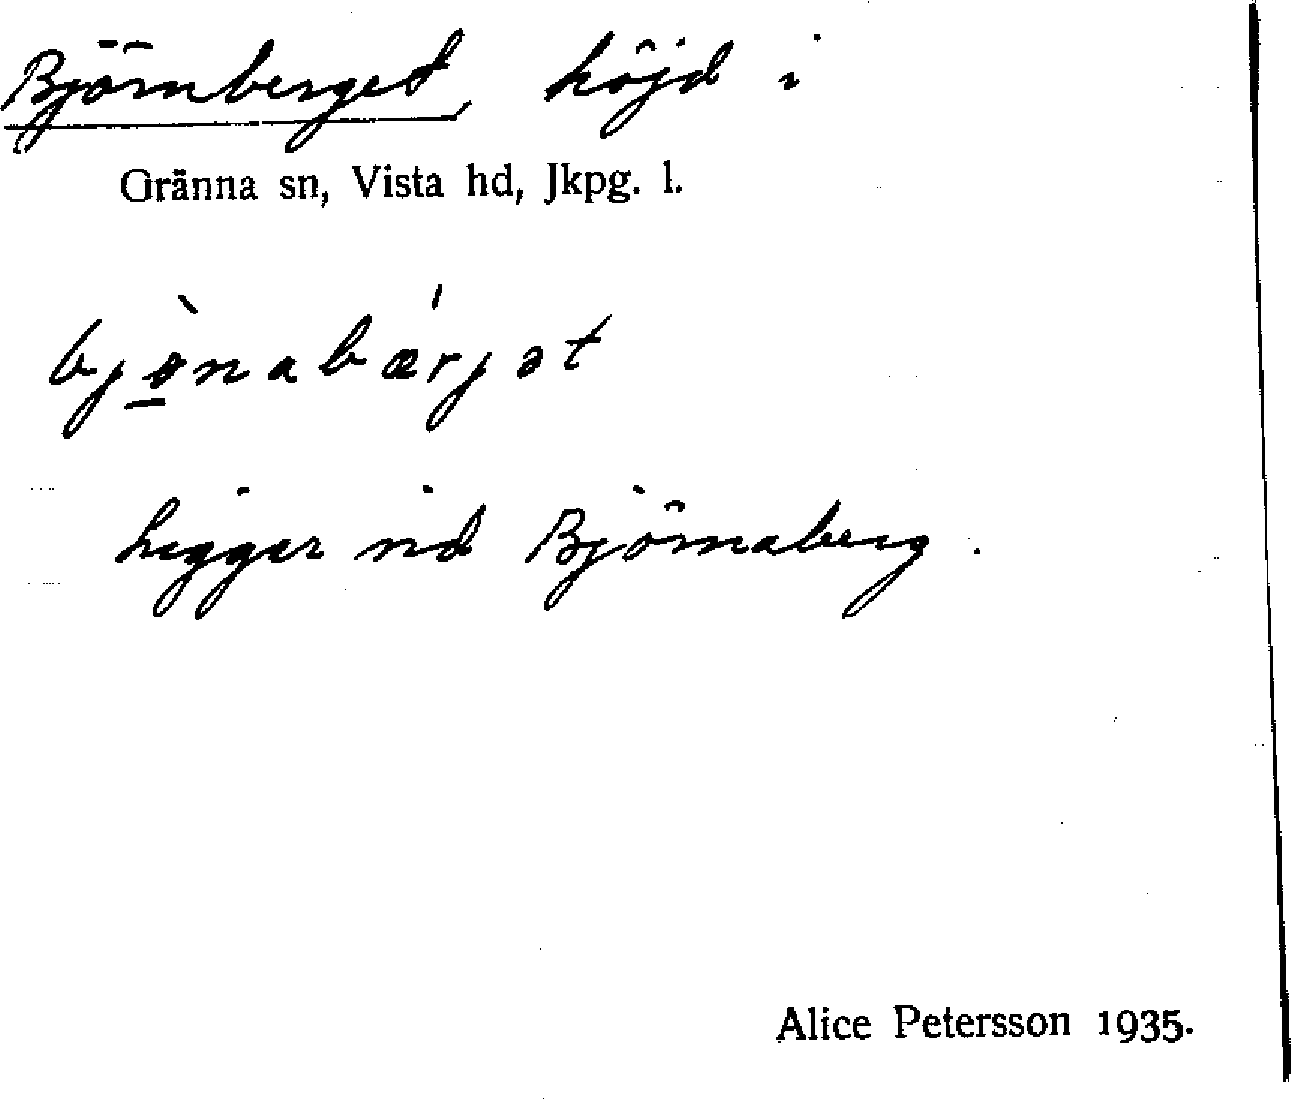 Björnberget, höjd i
Gränna sn, Vista hd, Jkpg. l.
bjø̀nabǽrjət
Ligger vid Björnaberg.
Alice Petersson 1935.